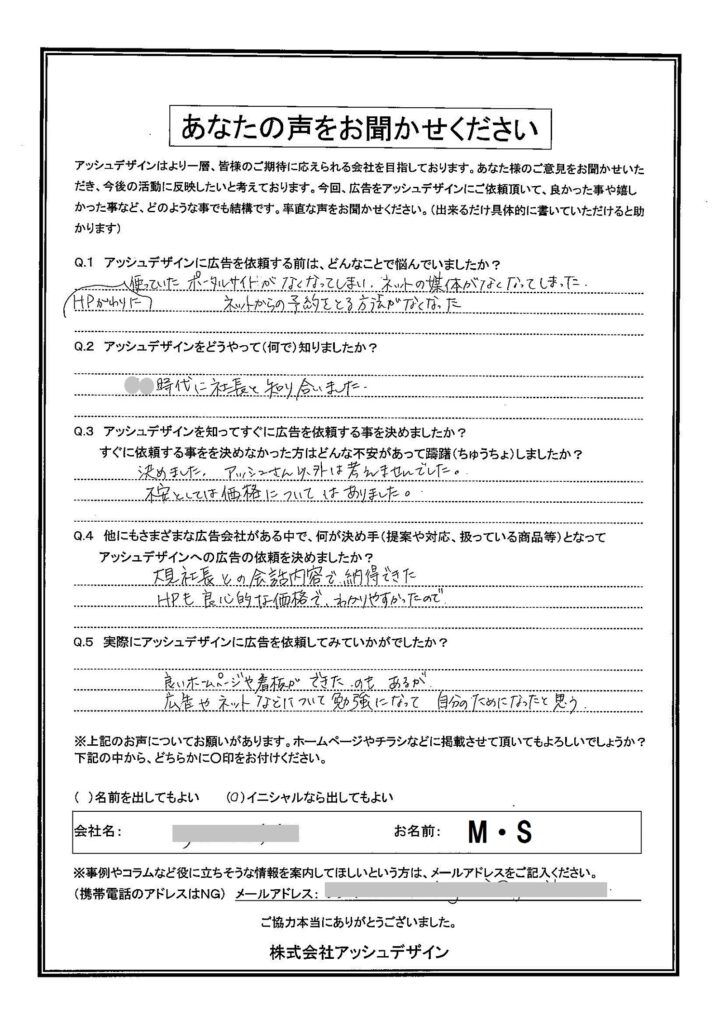 あなたの声をお聞かせください
アッシュデザインはより一層、皆様のご期待に応えられる会社を目指しております。あなた様のご意見をお聞かせいた
だき、今後の活動に反映したいと考えております。今回、広告をアッシュデザインにご依頼頂いて、良かった事や嬉し
かった事など、どのような事でも結構です。率直な声をお聞かせください。(出来るだけ具体的に書いていただけると助
かります)
Q.1 アッシュデザインに広告を依頼する前は、どんなことで悩んでいましたか?
使っていた ポータルサイトが なくなってしまい、ネットの媒体がなくなってしまった.
HPがわりに ネットからの予約をとる方法がなくなった
Q.2 アッシュデザインをどうやって(何で)知りましたか?
時代に社長と知り合いました.
Q.3 アッシュデザインを知ってすぐに広告を依頼する事を決めましたか?
すぐに依頼する事をを決めなかった方はどんな不安があって躊躇(ちゅうちょ)しましたか?
決めました. アッシュさん以外は考えませんでした。
不安としては価格について はありました。
Q.4 他にもさまざまな広告会社がある中で、何が決め手(提案や対応、扱っている商品等)となって
アッシュデザインへの広告の依頼を決めましたか?
社長との会話内容で納得できた
HPも良心的な価格で、わかりやすかったので
Q.5 実際にアッシュデザインに広告を依頼してみていかがでしたか?
良いホームページや看板が できた のも あるが
広告や ネットなどについて勉強になって 自分のためになったと思う
※上記のお声についてお願いがあります。ホームページやチラシなどに掲載させて頂いてもよろしいでしょうか?
下記の中から、どちらかに〇印をお付けください。
( )名前を出してもよい (〇)イニシャルなら出してもよい
会社名: お名前: M・S
※事例やコラムなど役に立ちそうな情報を案内してほしいという方は、メールアドレスをご記入ください。
(携帯電話のアドレスはNG) メールアドレス:
ご協力本当にありがとうございました。
株式会社アッシュデザイン